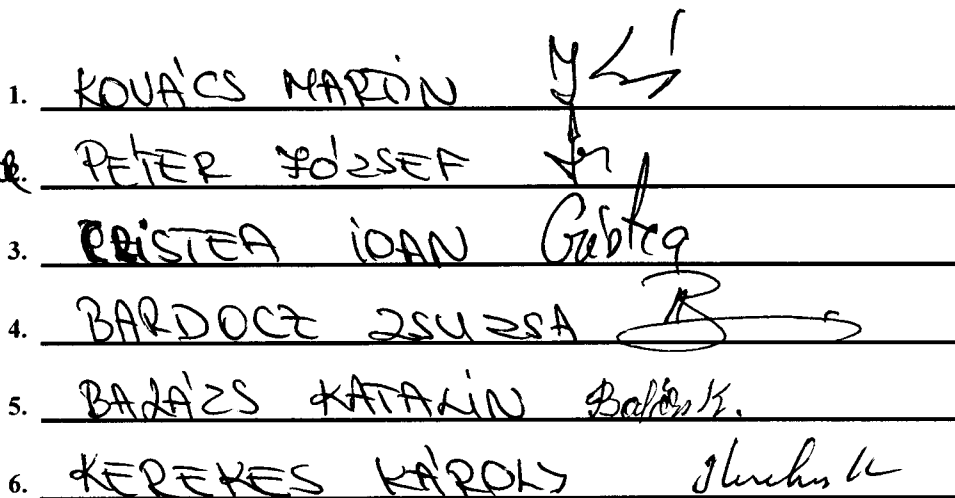 1. KOVÁCS MARTIN
2. PÉTER JÓZSEF
3. CRISTEA IOAN Cristea
4. BARDOCZ ZSUZSA
5. BALÁZS KATALIN Balázs K.
6. KEREKES KÁROLY Kerekes K